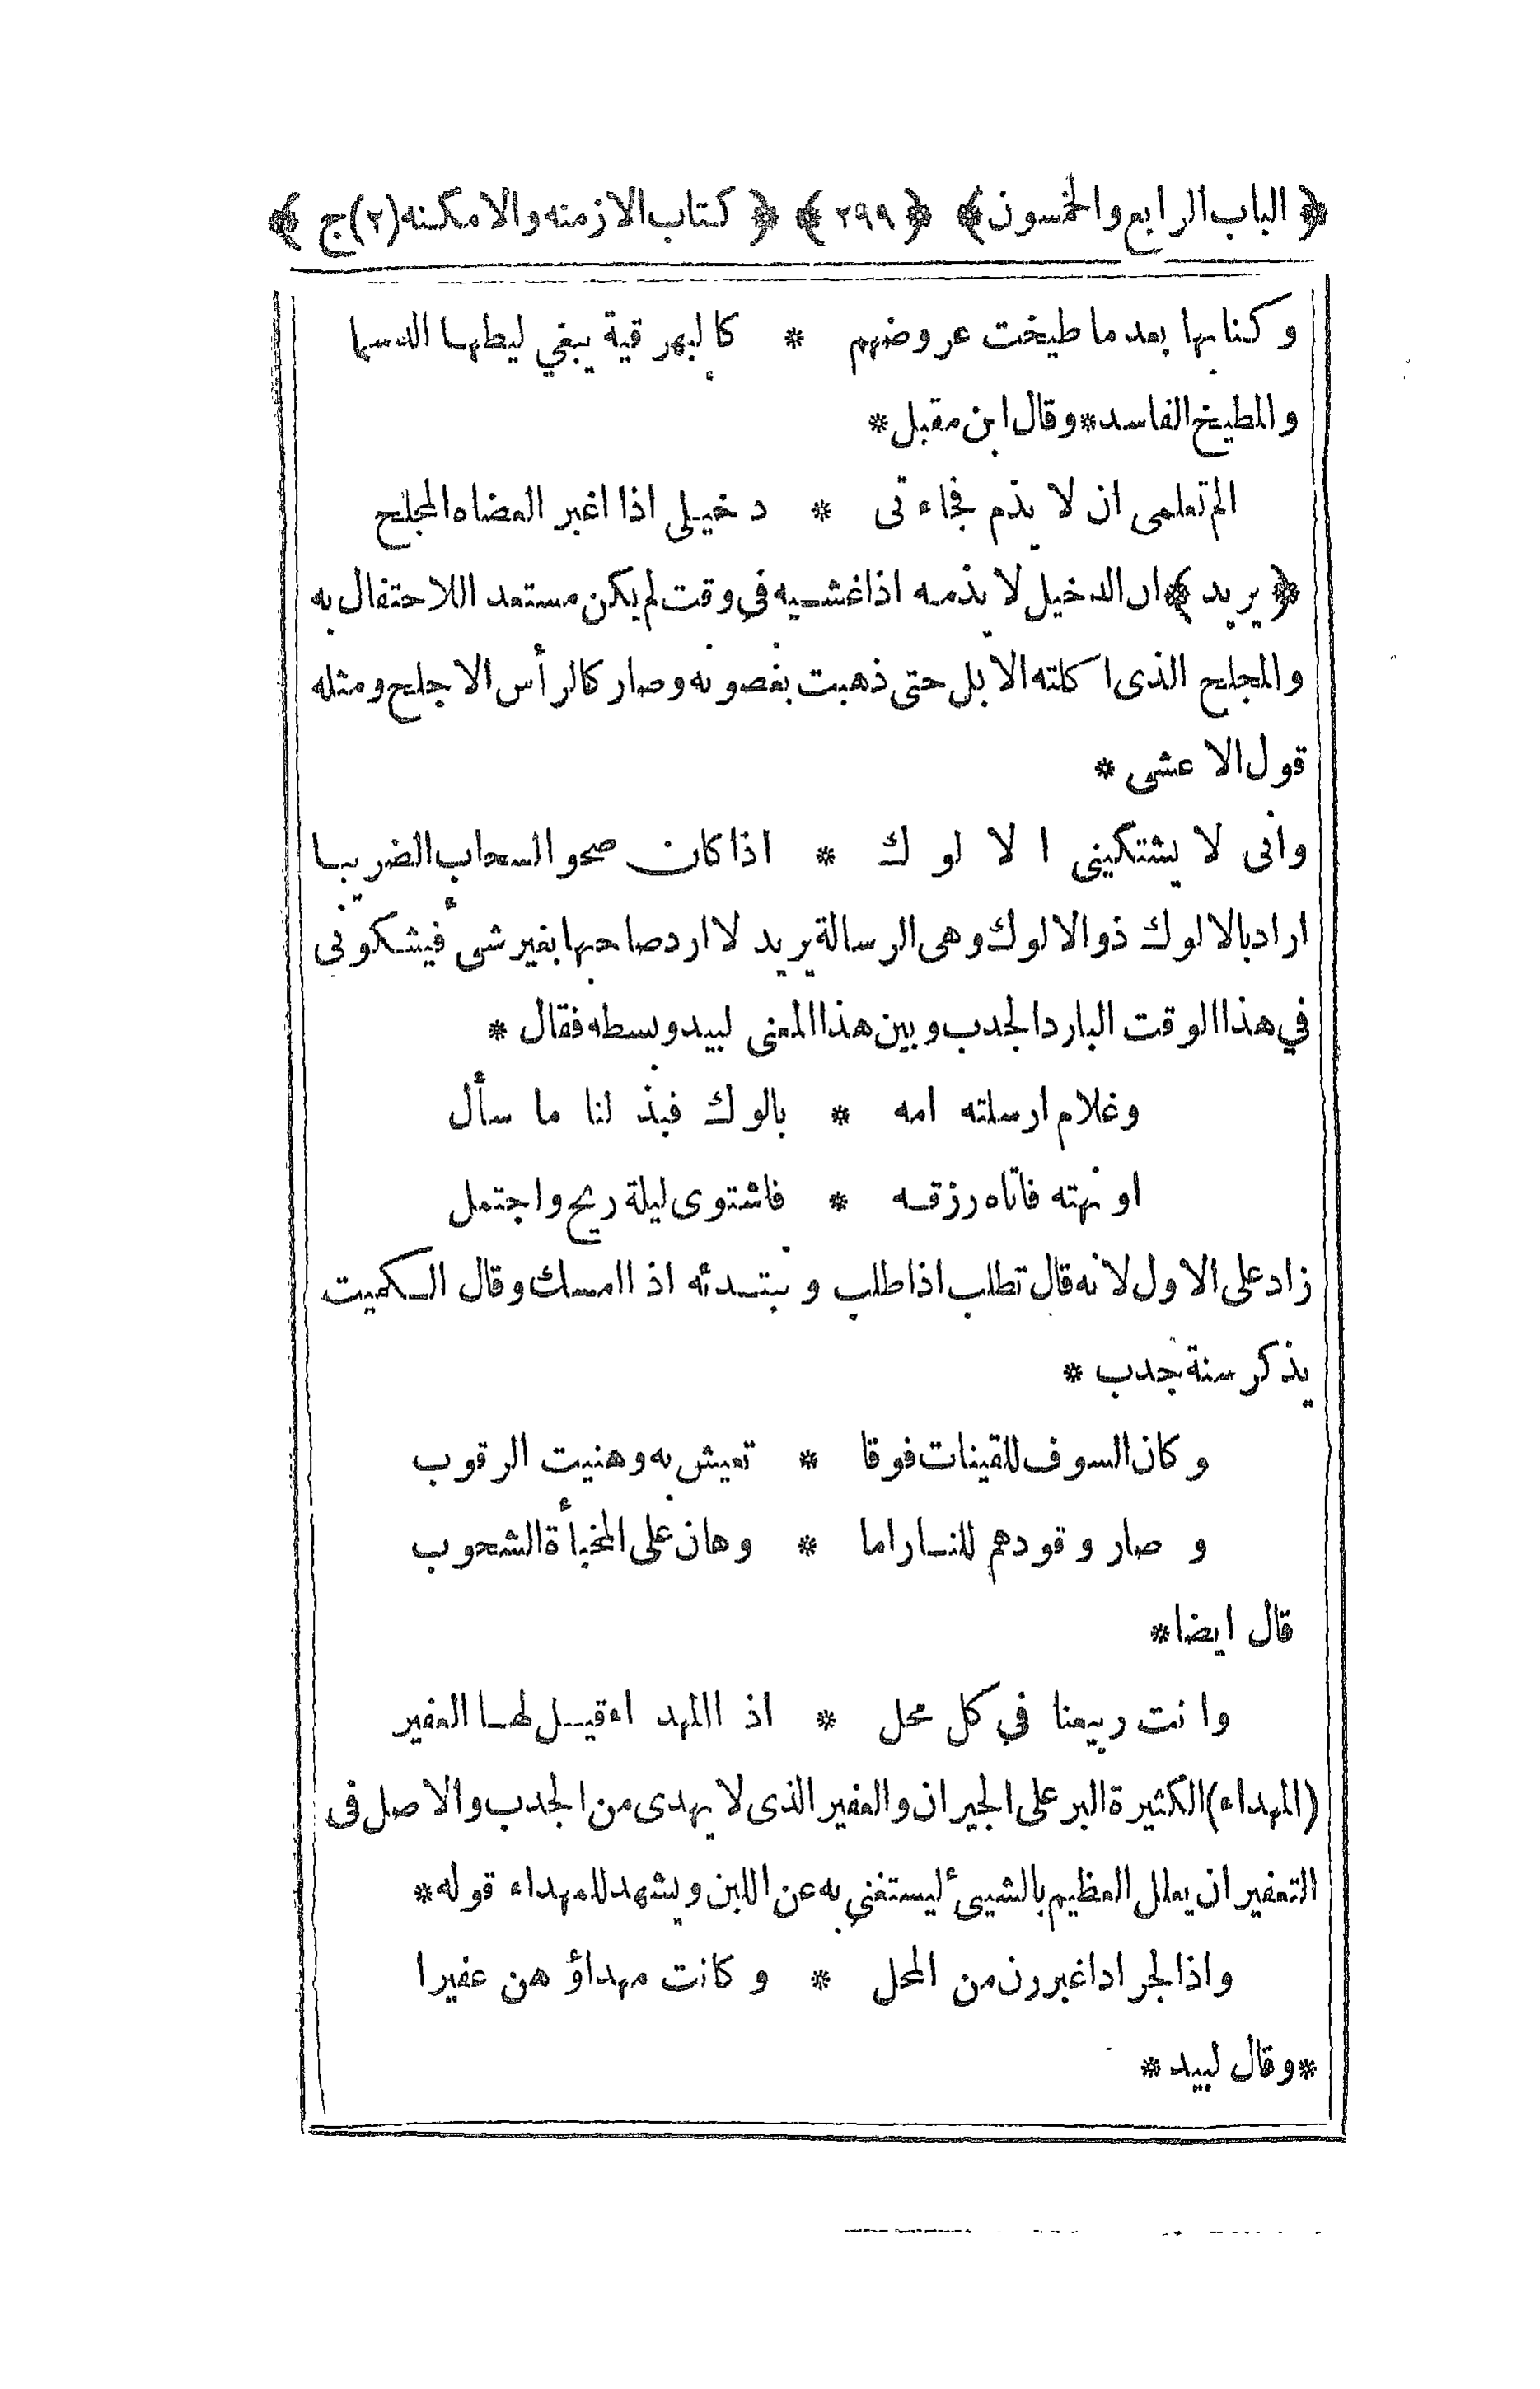 ﴿ الباب الرابع والخمسون ﴾ ﴿ ٢٩٩ ﴾ ﴿ كتاب الازمنه والامكنه (٢) ج ﴾
وكنا بها بعد ما طيخت عروضهم * كالهبرقية ينفي ليطها الدسما
والمطيخ الفاسد * وقال ابن مقبل *
الم تعلمى ان لا يذم فجاءتى * دخيلى اذا اغبر العضاه المجلح
﴿ يريد ﴾ ان الدخيل لا يذمه اذا غشيه في وقت لم يكن مستعد اللاحتفال به
والمجلح الذى اكلته الابل حتى ذهبت بغصونه وصار كالرأس الاجلح ومثله
قول الاعشى *
وانى لا يشتكينى الالوك * اذا كان صحو السحاب الضريبا
اراد بالالوك ذو الالوك وهى الرسالة يريد لا ارد صاحبها بغير شئ فيشكونى
في هذا الوقت البارد الجدب وبين هذا المعنى لبيد وبسطه فقال *
وغلام ارسلته امه * بالوك فبذلنا ما سأل
او نهته فاتاه رزقه * فاشتوى ليلة ريح واجتمل
زاد على الاول لانه قال تطلب اذا طلب ونبتدئه اذا امسك وقال الكميت
يذكر سنة جدب *
وكان السوف للقينات فوقا * تعيش به وهنيت الرقوب
وصار وقودهم للنار اما * وهان على المخبأة الشحوب
قال ايضا *
وانت ربيعنا في كل محل * اذا المهداء قيل لها العفير
(المهداء) الكثيرة البر على الجيران والعفير الذى لا يهدى من الجدب والاصل فى
التعفير ان يعلل العظيم بالشيئ ليستغني به عن اللبن ويشهد للمهداء قوله *
واذا لجراد اغبررن من المحل * وكانت مهداؤهن عفيرا
* وقال لبيد *